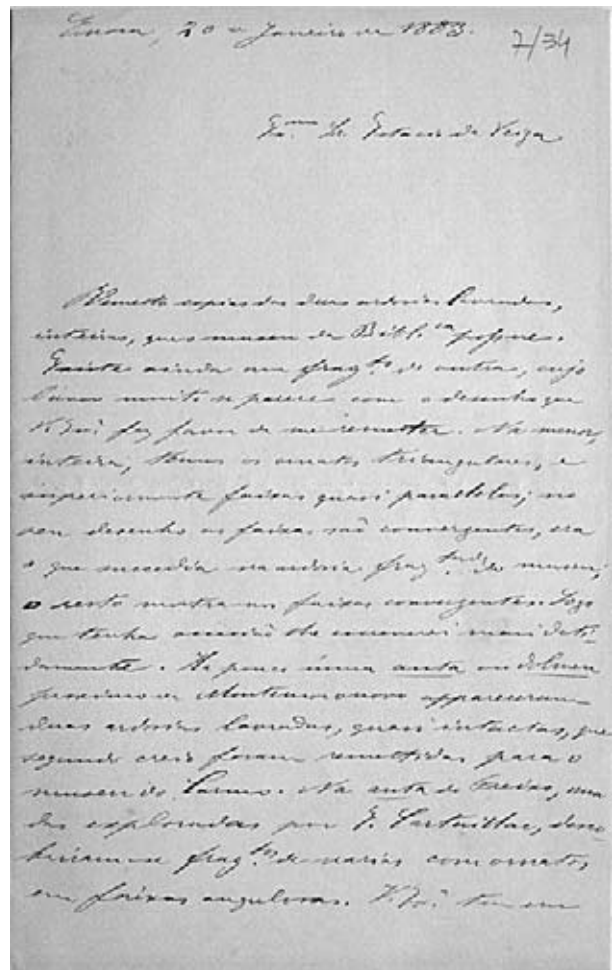 Evora, 20 de Janeiro de 1883.
7/34
Ex.mo Sr. Estacio da Veiga
Remetto copias das duas ardosias lavradas,
inteiras, que o museu da Bibl.ca possue.
Existe ainda um frag.to de outra, cujo
lavor muito se parece com o desenho que
V. Ex.a fez favor de me remetter. Na menor,
inteira, temos os ornatos triangulares, e
superiormente faixas quasi parallelas; no
seu desenho as faixas são convergentes, era
o que succedia na ardosia frag.tada do museu;
o resto mostra-nos faixas convergentes. Logo
que tenha occasião lhe escreverei mais deti-
damente. Ha pouco n'uma anta ou dolmen
proximo de Montemor o novo appareceram
duas ardosias lavradas, quasi intactas, que
segundo creio foram remettidas para o
museu do Carmo. Na anta de Freixo, uma
das exploradas por E. Cartailhac, desco-
briram-se frag.tos de varias com ornatos
em faixas angulosas. V. Ex.a tem em